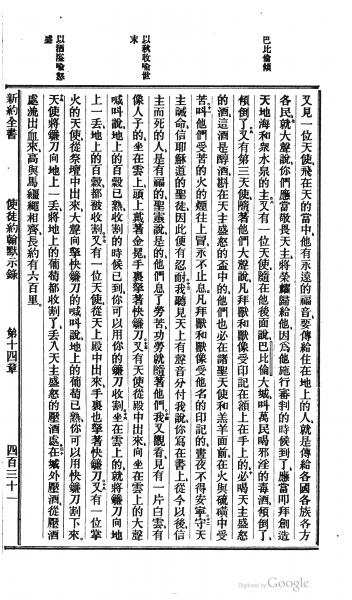 又見一位天使、飛在天的當中、他有永遠的福音、要傳給住在地上的人、就是傳給各國各族各方
各民、就大聲說、你們應當敬畏天主、將榮耀歸給他、因爲他施行審判的時候到了、應當叩拜創造
天地海和衆水泉的主、又有一位天使、隨在他後面說、巴比倫大城、叫萬民喝邪淫的毒酒、傾倒了、
傾倒了、又有第三天使、隨著他們大聲說、凡拜獸和獸像、受印記在額上在手上的、必喝天主盛怒
的酒、這酒是醇酒斟在天主盛怒的盃中的、他們也必在諸聖天使和羔羊面前、在火與硫磺中受
苦、叫他們受苦的火的煙往上冒、永不止息、凡拜獸和獸像、受他名的印記的、晝夜不得安寧、守天
主誡命、信耶穌道的聖徒、因此便有忍耐、我聽見天上有聲音分付我說、你寫在書上、從今以後、信
主而死的人、是有福的、聖靈說、是的、他們息了勞苦、功勞就隨著他們、我又觀看、見有一片白雲、有
像人子的、坐在雲上、頭上戴著金冕、手裏拏著快鐮刀、又有天使從殿中出來、向坐在雲上的大聲
喊叫說、地上的百穀已熟、收割的時候已到、你可以用你的鐮刀收割、坐在雲上的、就將鐮刀向地
上一丟、地上的百穀、都被收割、又有一位天使、從天上殿中出來、手裏也拏著快鐮刀、又有一位掌
火的天使從祭壇中出來、大聲向拏快鐮刀的喊叫說、地上的葡萄已熟、你可以用快鐮刀割下來、
天使將鐮刀向地上一丟、將地上的葡萄都收割了、丟入天主盛怒的壓酒處、在城外壓酒、從壓酒
處流出血來、高與馬纒纒相齊、長約有六百里。
巴比倫傾
以秋收喻世
末
以酒醡喻怒
盛
新約全書 使徒約翰默示錄 第十四章 四百三十一
Digitized by Google